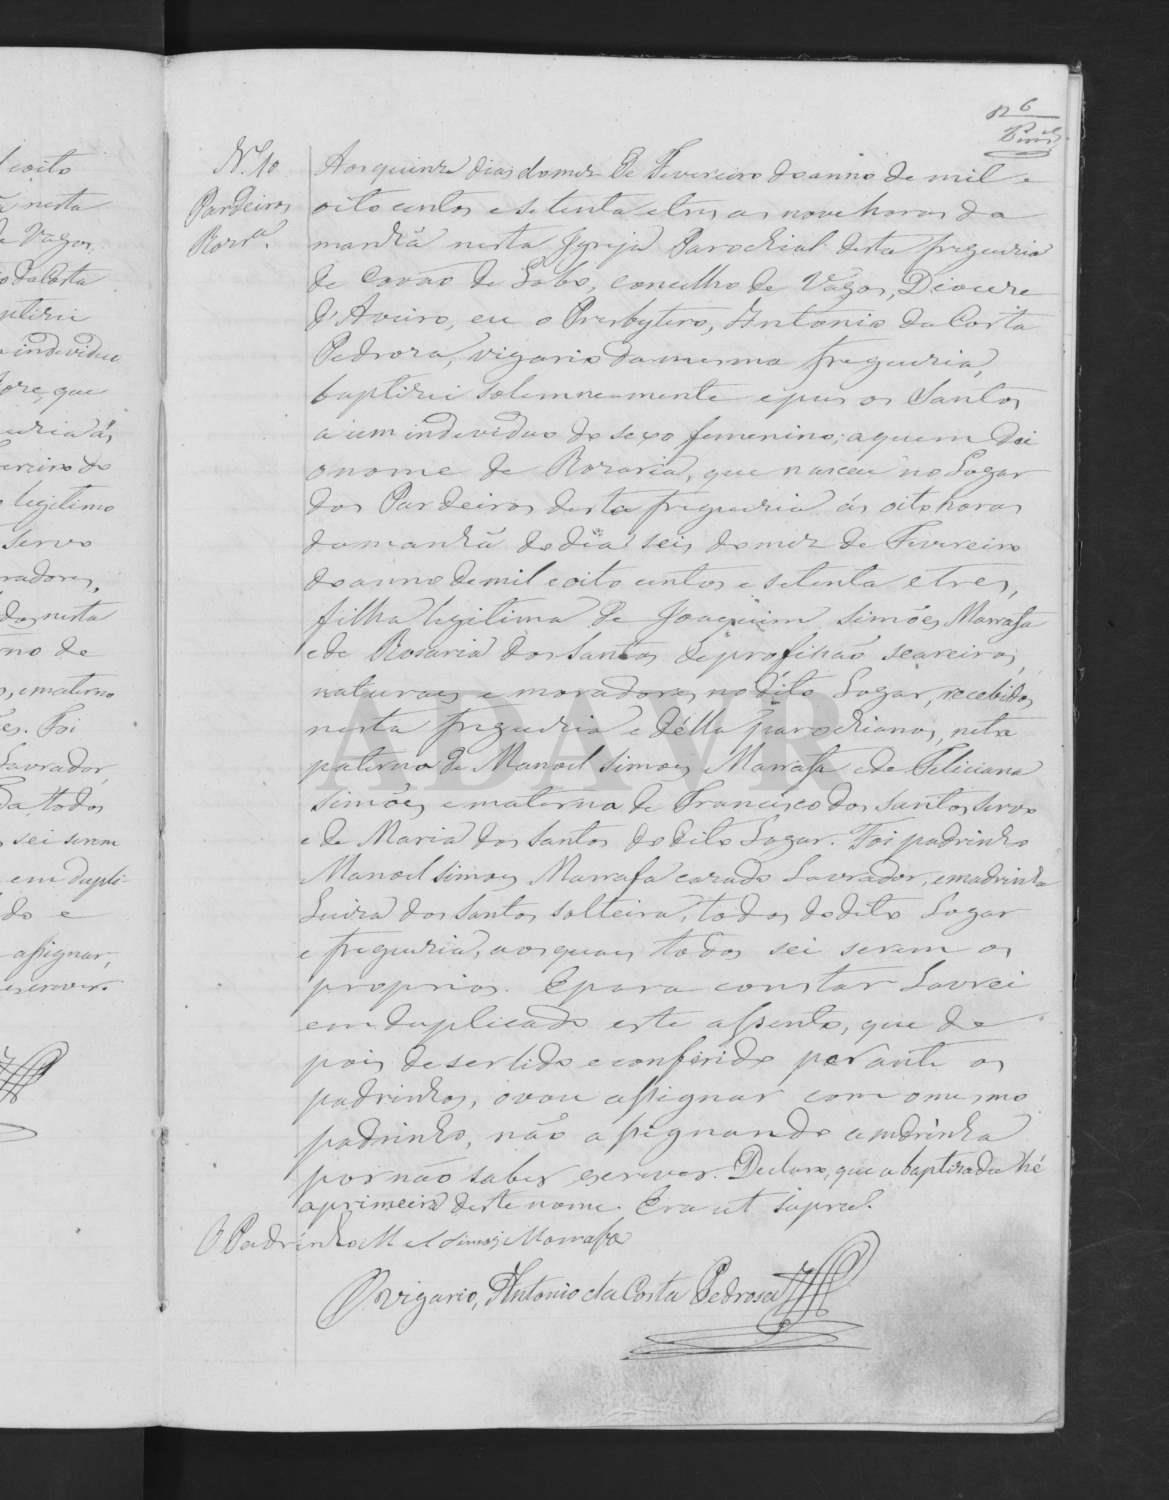 nº 6
N.º 10
Pardeiros
Rosrª.
Aos quinze dias do mez de Fevereiro do anno de mil e
oito centos e setenta e tres as nove horas da
manhã nesta Igreja Parochial desta freguezia
de Covão de Lobo, concelho de Vagos, Diocese
d'Aveiro, eu o Presbytero, Antonio da Costa
Pedroza, vigario da mesma freguezia,
baptizei solemnemente e pus os Santos
a um individuo do sexo femenino; a quem dei
o nome de Rozaria, que nasceu no Logar
dos Pardeiros desta freguezia ás oito horas
da manhã do dia seis do mez de Fevereiro
do anno de mil e oito centos e setenta e tres,
filha legitima de Joaquim Simões Marrafa
e de Rosaria dos Santos de profissão seareiros,
naturaes e moradores no dito Logar, recebidos
nesta freguezia e d'ella parochianos, neta
paterna de Manoel Simoes Marrafa e de Feliciana
Simões e materna de Francisco dos Santos Servo
e de Maria dos Santos do dito Logar. Foi padrinho
Manoel Simoes Marrafa cazado Lavrador, e madrinha
Luiza dos Santos solteira, todos do dito Logar
e freguezia, aos quaes todos sei serem os
proprios. E para constar Lavrei
em duplicado este assento, que de
pois de ser lido e conferido perante os
padrinhos, o vou assignar com o mesmo
padrinho, não assignando a madrinha
por não saber escrever. Declaro, que a baptizada hé
a primeira deste nome. Era ut supra.
O Padrinho Mel Simões Marrafa
O vigario, Antonio da Costa Pedrosa
ADAVR
coito
nesta
de Vagos,
da Costa
ptizei
individuo
que
uzia ás
vereiro do
legitimo
Servo
radores,
dos nesta
no de
, e materno
es. Foi
Lavrador,
da todos
sei serem
em dupli-
do e
assignar,
escrever.